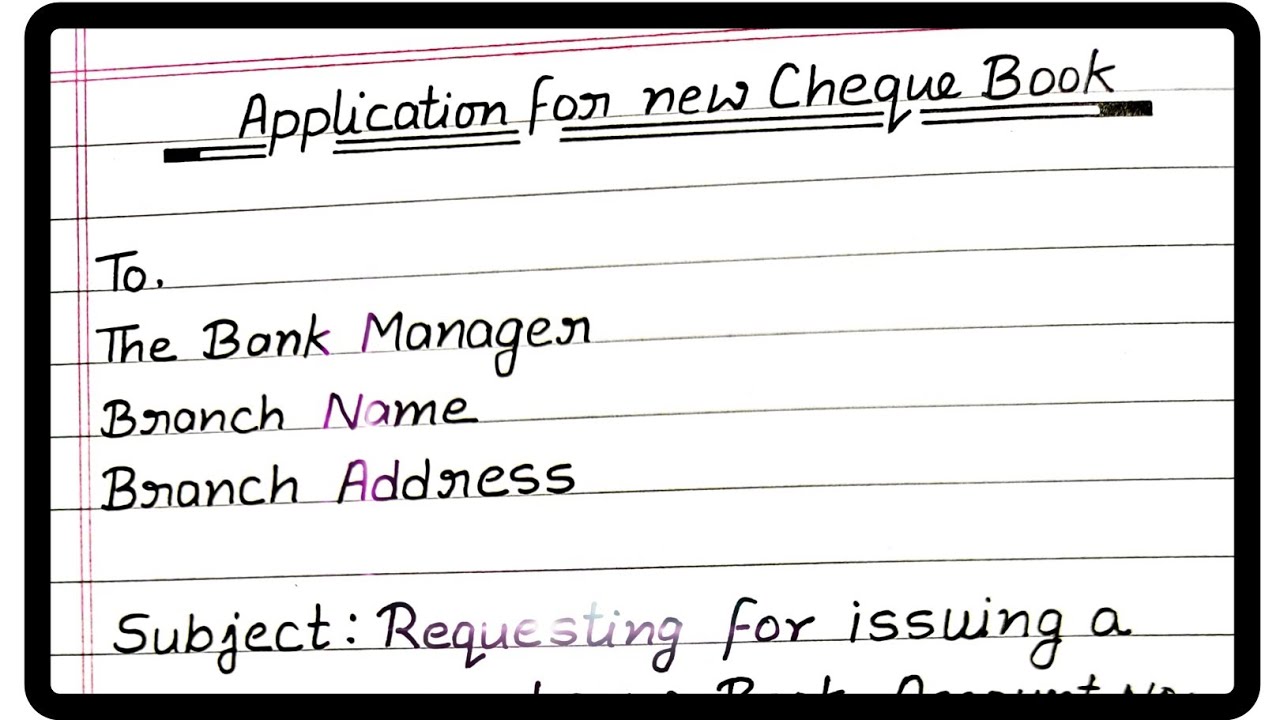 Application for new Cheque Book
To.
The Bank Manager
Branch Name
Branch Address
Subject: Requesting for issuing a
Book Account No